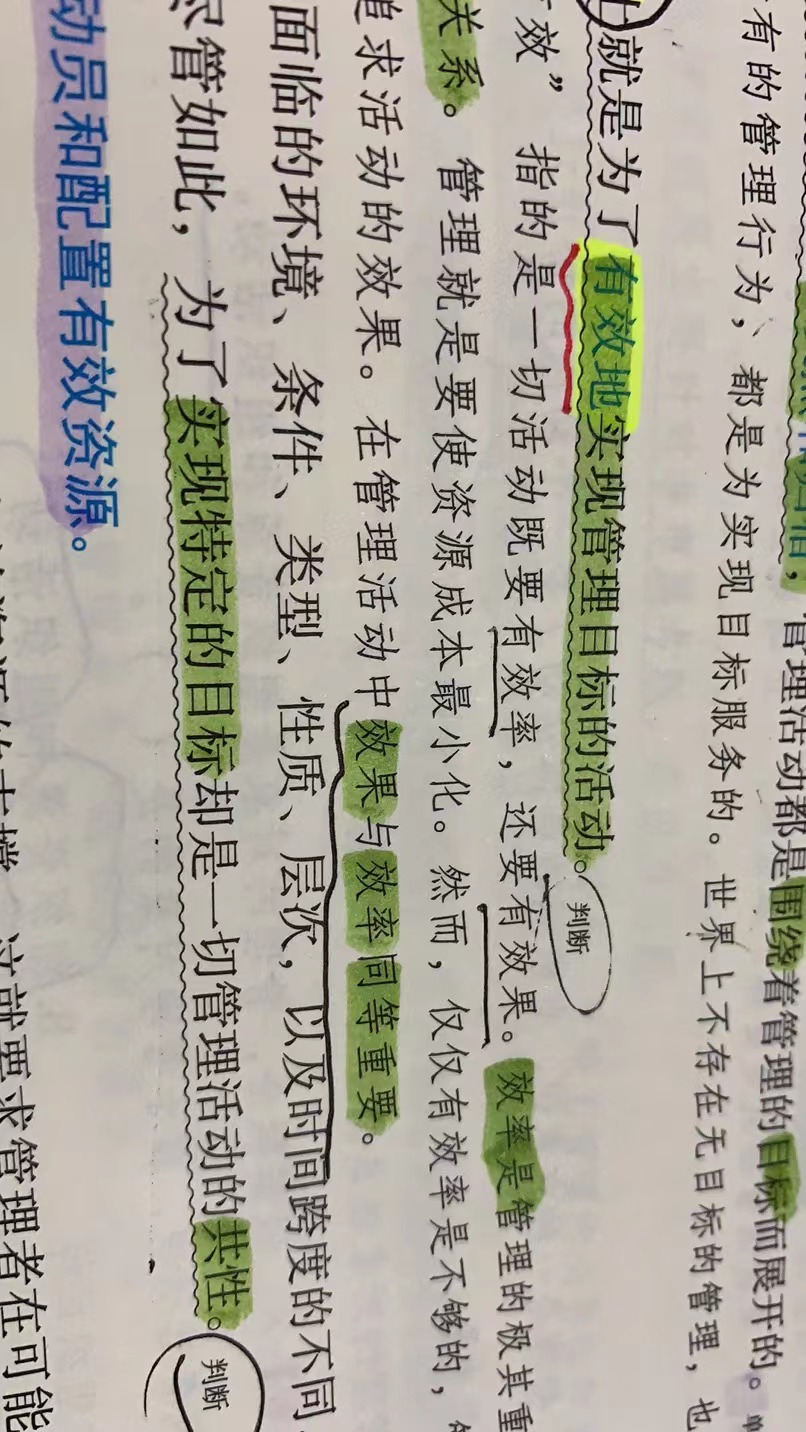 管理活动都是围绕着管理的目标而展开的。
有的管理行为，都是为实现目标服务的。世界上不存在无目标的管理，也
就是为了有效地实现管理目标的活动。判断
效”指的是一切活动既要有效率，还要有效果。效率是管理的极其重
关系。管理就是要使资源成本最小化。然而，仅仅有效率是不够的，
追求活动的效果。在管理活动中效果与效率同等重要。
面临的环境、条件、类型、性质、层次，以及时间跨度的不同
尽管如此，为了实现特定的目标却是一切管理活动的共性。判断
动员和配置有效资源。
这就要求管理者在可能